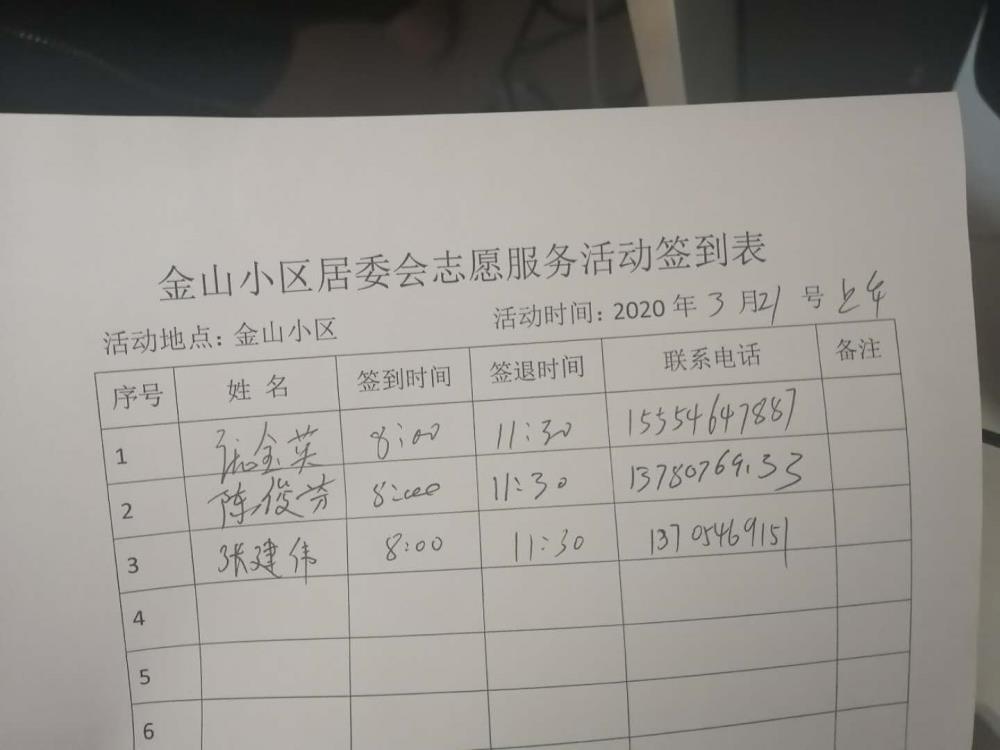 金山小区居委会志愿服务活动签到表
活动地点：金山小区 活动时间：2020 年 3 月 21 号 上午
序号 姓名 签到时间 签退时间 联系电话 备注
1 张金英 8:00 11:30 15554647887
2 陈俊芬 8:00 11:30 13780769133
3 张建伟 8:00 11:30 13705469151
4
5
6